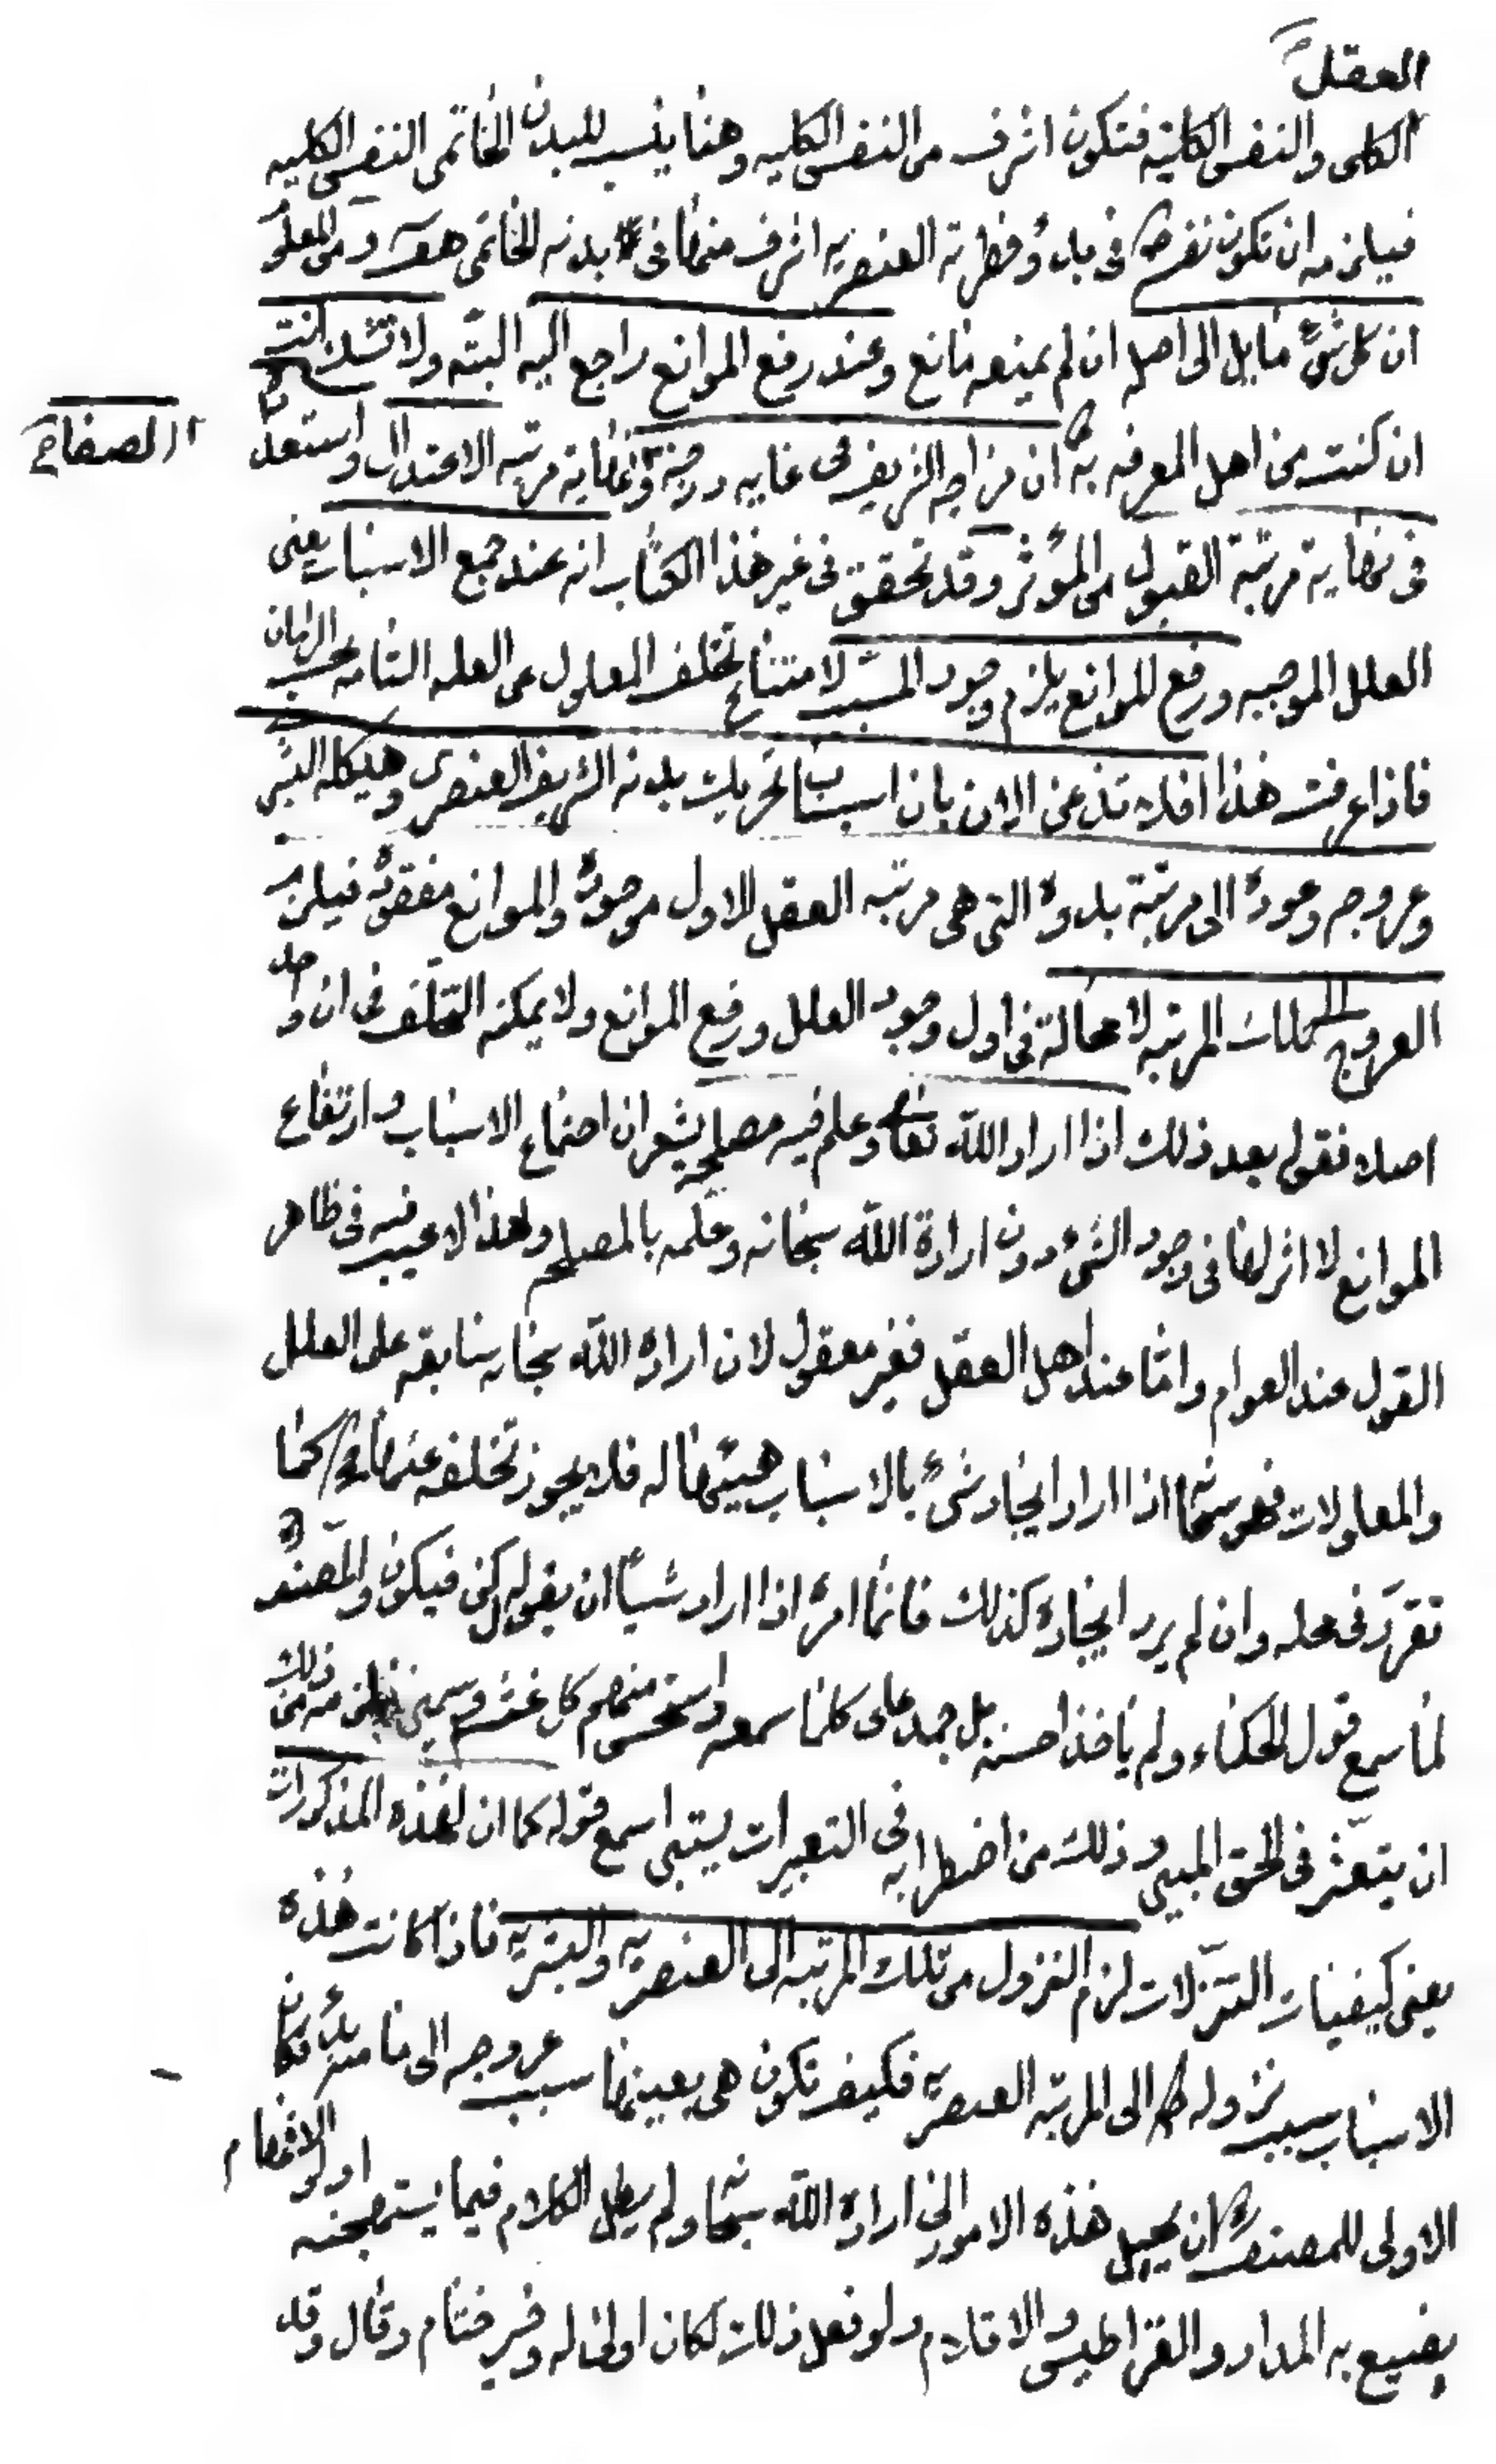 العقل
الكلى والنفس الكليّه فتكون اشرف من النفس الكليه وهنا ينسب للبدن الخاتمى النفس الكليه
فيلزمه ان تكون نفسه ص فى بدؤ فطرته العنصريه اشرف منها فى بدنه الخاتمى هف ومن المعلوم
ان كل شئ مايل الى اصله ان لم يمنعه مانع وعند رفع الموانع راجع اليه البتّه ولا تشك انت
ان كنت من اهل المعرفه به ص ان مزاجه الشريف فى غايه درجة ونهاية مرتبه الاعتدال واستعداده
الصفاح
فى نهاية مرتبة القبول من المؤثر وقد تحقق فى غير هذا الكتاب انه عند جمع الاسباب يعنى
العلل الموجبه ورفع الموانع يلزم وجود المسبب لامتناع تخلف المعلول عن العله التامه بحسب الزمان
فاذا عرفت هذا افلا تذعن الان بان اسباب تحريك بدنه الشريف العنصرى وهيكله البشرى
وعروجه وعوده الى مرتبة بدوه التى هى مرتبه العقل الاول موجوده والموانع مفقوده فيلزمه
العروج الى تلك المرتبه لا محالة فى اول وجود العلل ورفع الموانع ولا يمكنه التخلف فى ان واحد
اصلا فقوله بعد ذلك اذا اراد الله تعالى وعلم فيه مصلحة يشعر ان اجتماع الاسباب وارتفاع
الموانع لا اثر لها فى وجود الشئ دون ارادة الله سبحانه وعلمه بالمصلحه ولهذا لا عيب فيه فى ظاهر
القول عند العوام واما عند اهل العقل فغير معقول لان اراده الله سبحانه سابقه على العلل
والمعلولات فهو سبحانه اذا اراد ايجاد شئ بالاسباب هيئها له فلا يجوز تخلفه عنها كما
تقرر فى محله وان لم يرد ايجاده كذلك فانما امره اذا اراد شيئا ان يقول له كن فيكون والمصنف
لما سمع قول الحكماء ولم ياخذ احسنه بل جمد على كلما سمعه واستحسن منهم كل غث وسمين فيلزمه من ذلك
ان يتعثر فى الحق المبين وذلك من اضطرابه فى التعبيرات يستبين اسمع قوله كما ان لهذه المذكورات
يعنى كيفيات التنزلات لزم النزول من تلك المرتبه الى العنصريه والبشريه فاذا كانت هذه
الاسباب سبب نزوله ص الى المرتبه العنصريه فكيف تكون هى بعينها سبب عروجه الى ما منه بدؤ فكان
الاولى للمصنف ان يحيل هذه الامور الى ارادة الله سبحانه ولم يطل الكلام فيما يستهجنه اولو الافهام
يضيع به المداد والقراطيس والاقلام ولو فعل ذلك لكان اولى له وخير ختام وقال وقد